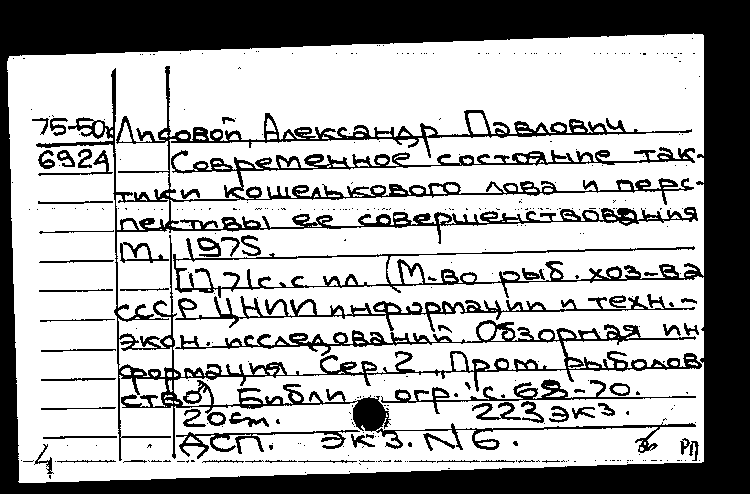 75-50к Лисовой, Александр Павлович.
6924 Современное состояние так-
тики кошелькового лова и перс-
пективы ее совершенствования
М., 1975.
[1], 71 с. с ил. (М-во рыб. хоз-ва
СССР. ЦНИИ информации и техн.-
экон. исследований. Обзорная ин-
формация. Сер. 2 „Пром. рыболов-
ство") Библиогр.: с. 68-70.
20 см. 223 экз.
ДСП. экз. N 6.
4 РП